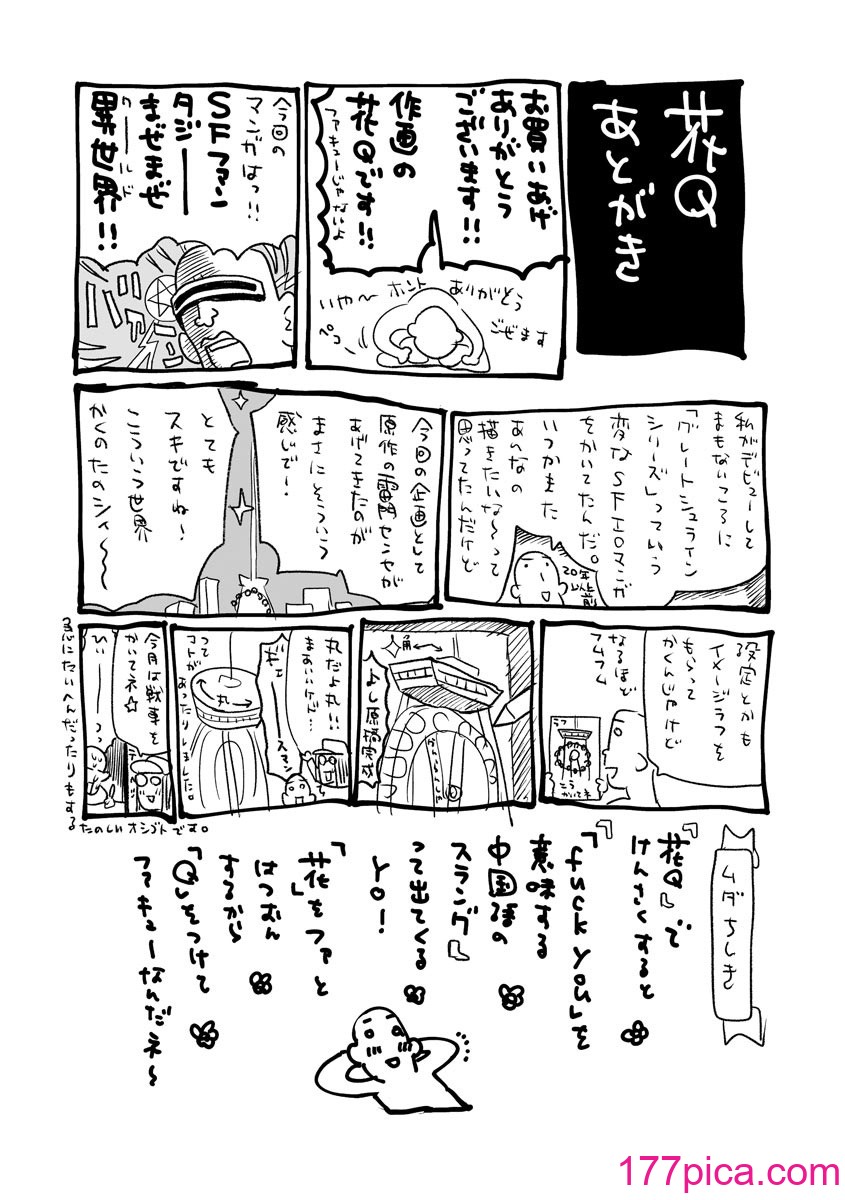 花Q
あとがき
お買いあげ
ありがとう
ございます!!
作画の
花Qです!!
ファキューじゃないよ
いや〜ホント ありがとう
ござます
ペコ
今回の
マンガはっ!!
SFファン
タジー
まぜまぜ
異世界!!
ワールド
私がデビューして
まもないころに
「グレートシュライン
シリーズ」っていう
変なSFエロマンガ
をかいてたんだ。
いつかまた
あんなの
描きたいな〜って
思ってたんだけど
20年
以上前
今回の企画として
原作の雷門センセが
あげてきたのが
まさにそういう
感じで!
とても
スキですね!
こういう世界
かくのたのシィ〜
設定とかも
イメージラフを
もらって
かくんじゃけど
なるほど
フムフム
ラフ
こう
かいてネ
角
よし原稿完成
丸だよ丸!!
まあいいけど…
ギェー
スマン
丸
って
コトが
あったりしました。
今月は戦車を
かいてネ☆
ひぃーっっ
急にたいへんだったりもする
たのしいオシゴトです。
ムダちしき
『花Q』で
けんさくすると
『「fuck you」を
意味する
中国語の
スラング』
って出てくる
yo!
「花をファと
はつおん
するから
「Q」をつけて
ファキューなんだネ〜
177pica.com